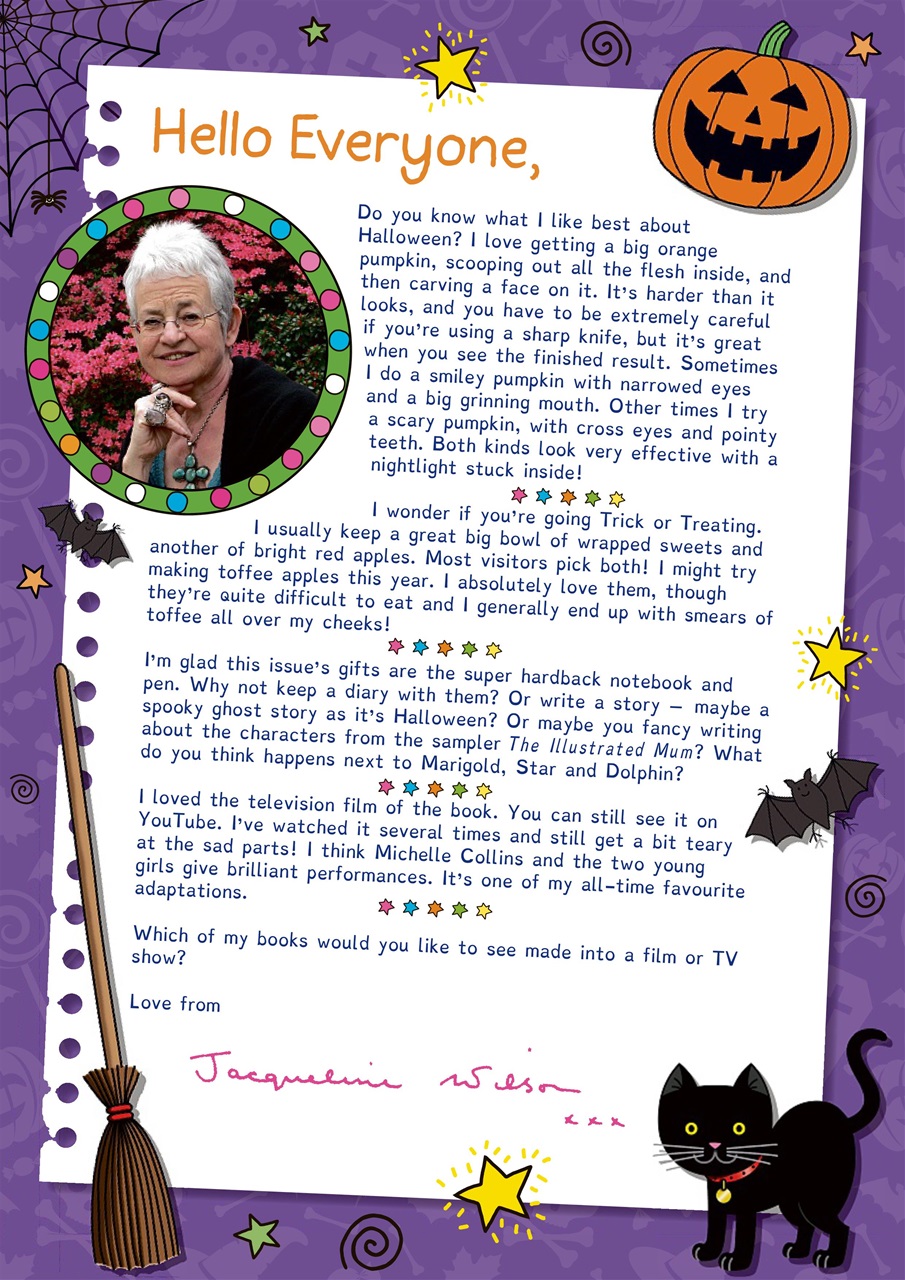 Hello Everyone,
Do you know what I like best about
Halloween? I love getting a big orange
pumpkin, scooping out all the flesh inside, and
then carving a face on it. It's harder than it
looks, and you have to be extremely careful
if you're using a sharp knife, but it's great
when you see the finished result. Sometimes
I do a smiley pumpkin with narrowed eyes
and a big grinning mouth. Other times I try
a scary pumpkin, with cross eyes and pointy
teeth. Both kinds look very effective with a
nightlight stuck inside!
I wonder if you're going Trick or Treating.
I usually keep a great big bowl of wrapped sweets and
another of bright red apples. Most visitors pick both! I might try
making toffee apples this year. I absolutely love them, though
they're quite difficult to eat and I generally end up with smears of
toffee all over my cheeks!
I'm glad this issue's gifts are the super hardback notebook and
pen. Why not keep a diary with them? Or write a story – maybe a
spooky ghost story as it's Halloween? Or maybe you fancy writing
about the characters from the sampler The Illustrated Mum? What
do you think happens next to Marigold, Star and Dolphin?
I loved the television film of the book. You can still see it on
YouTube. I've watched it several times and still get a bit teary
at the sad parts! I think Michelle Collins and the two young
girls give brilliant performances. It's one of my all-time favourite
adaptations.
Which of my books would you like to see made into a film or TV
show?
Love from
Jacqueline Wilson
x x x